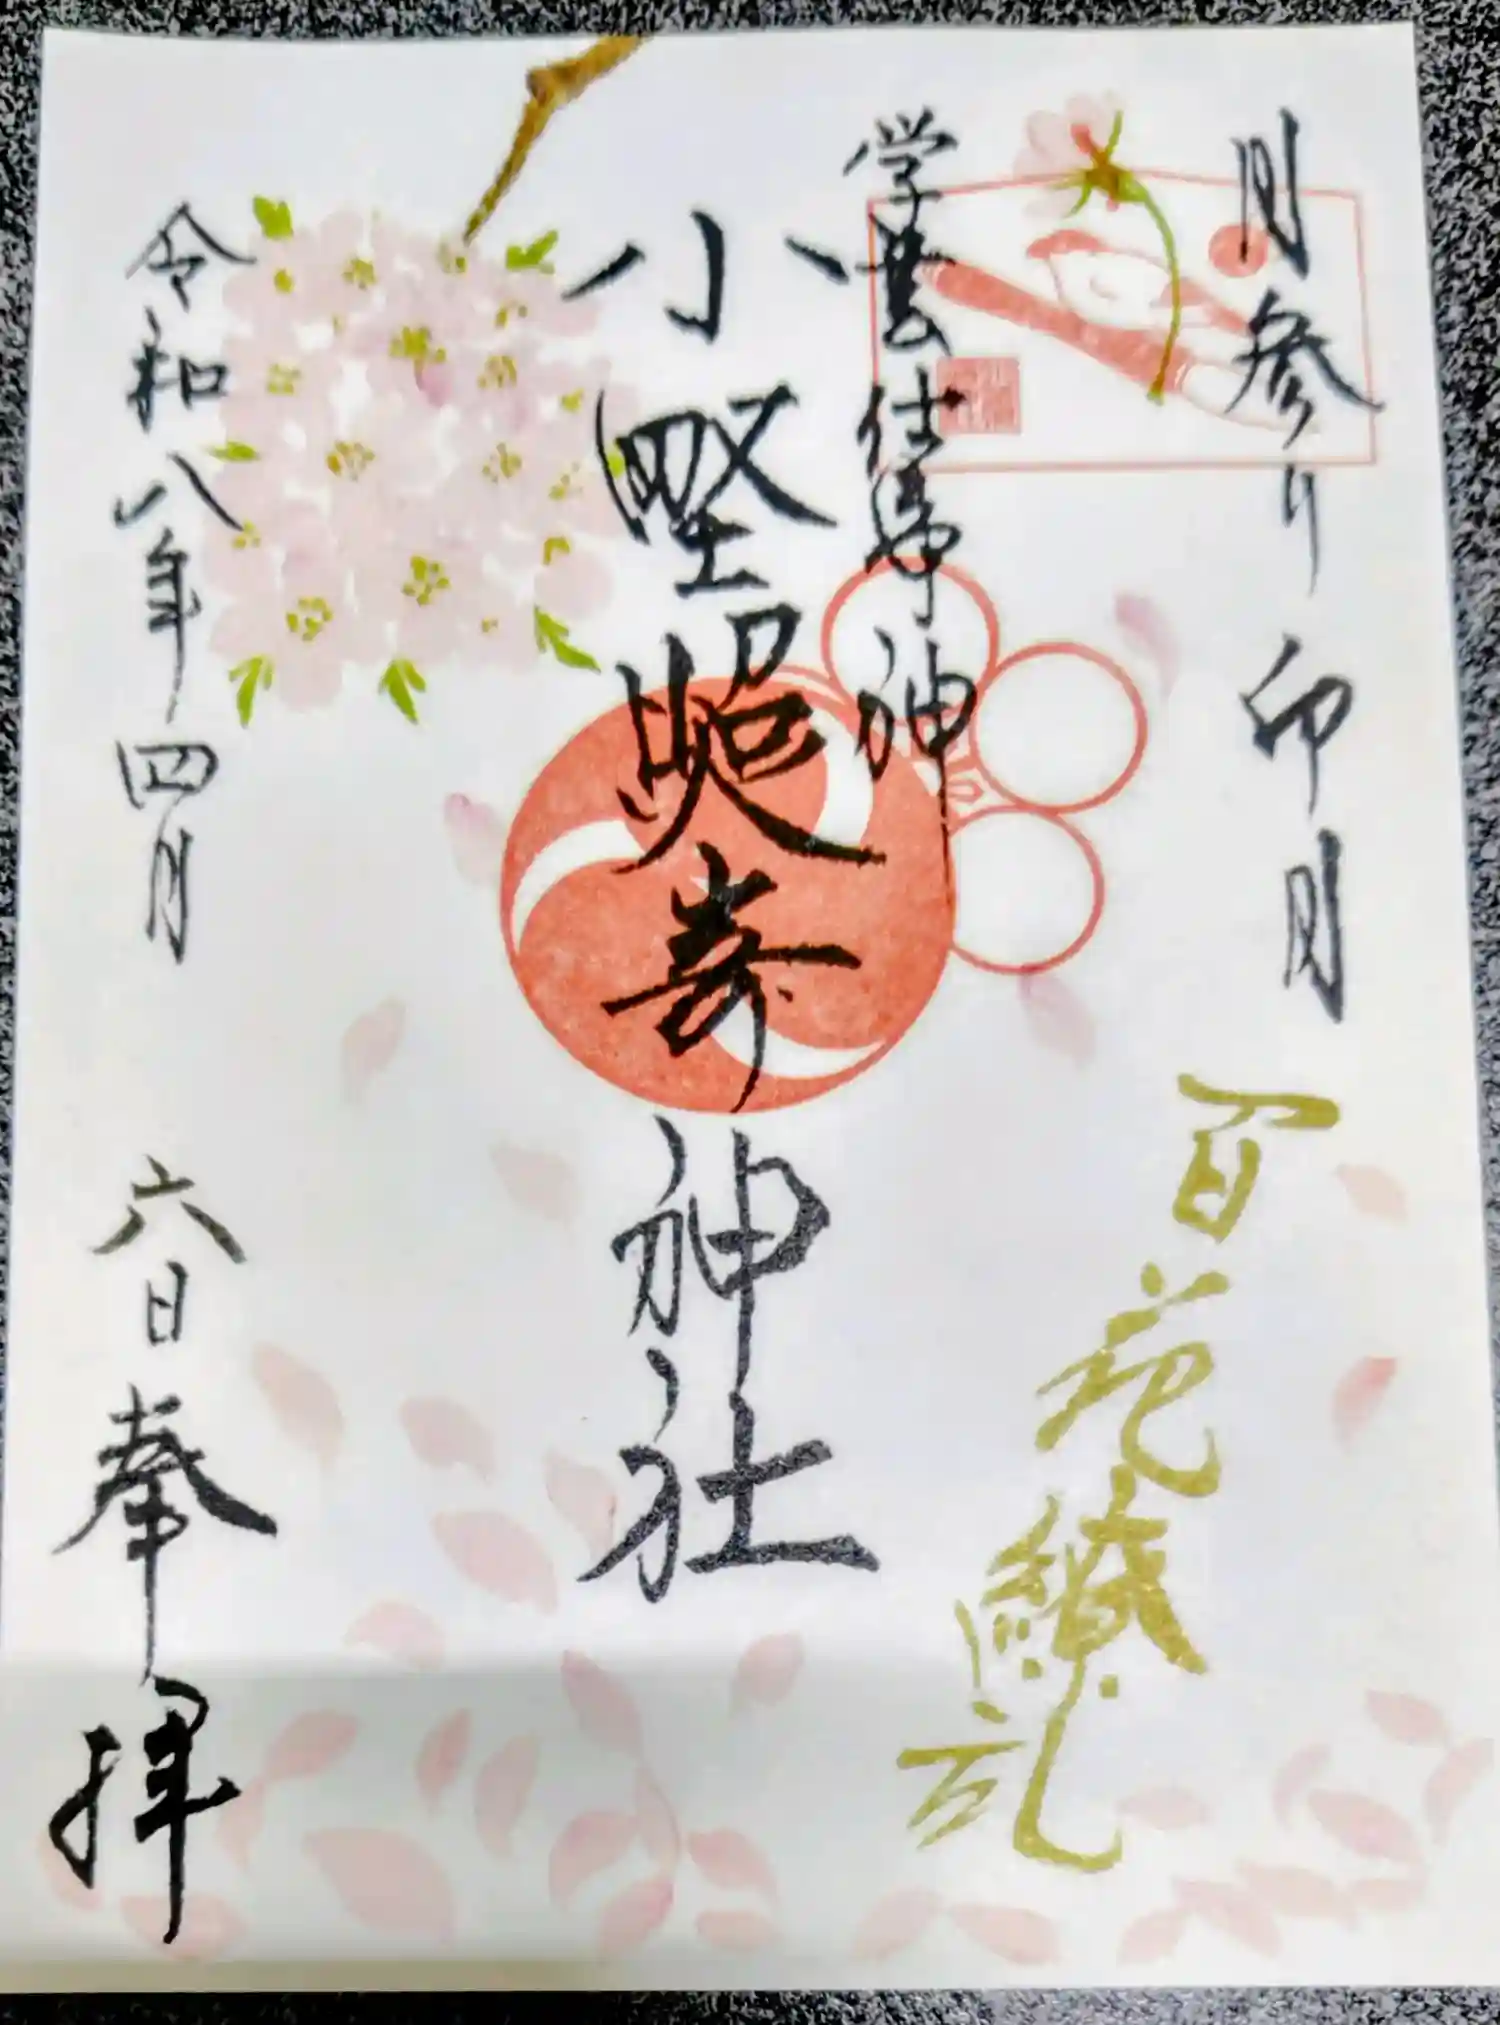 月参り 卯月
百花繚乱
学芸仕事神
小野照崎神社
令和八年四月 六日 奉拝